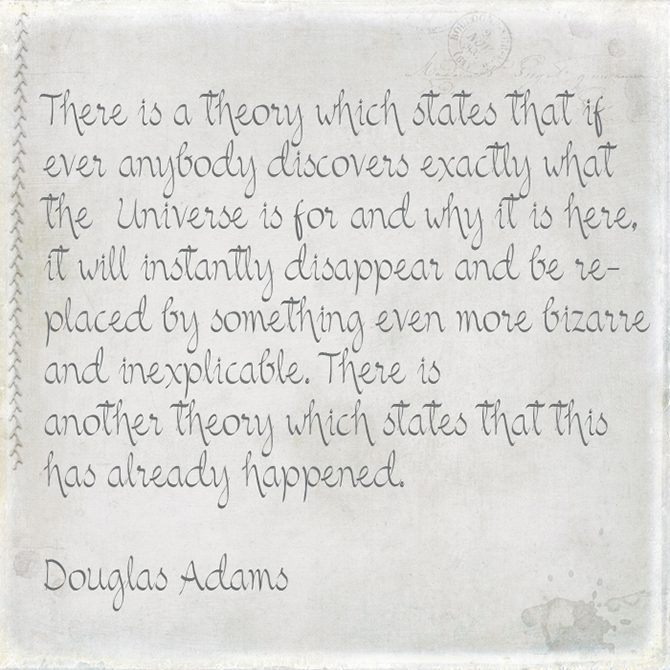 There is a theory which states that if
ever anybody discovers exactly what
the Universe is for and why it is here,
it will instantly disappear and be re-
placed by something even more bizarre
and inexplicable. There is
another theory which states that this
has already happened.
Douglas Adams